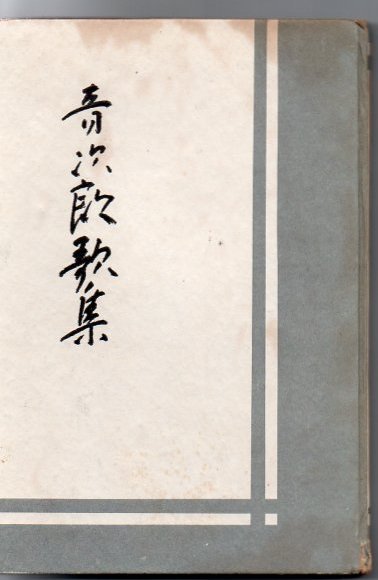 音次郎歌集